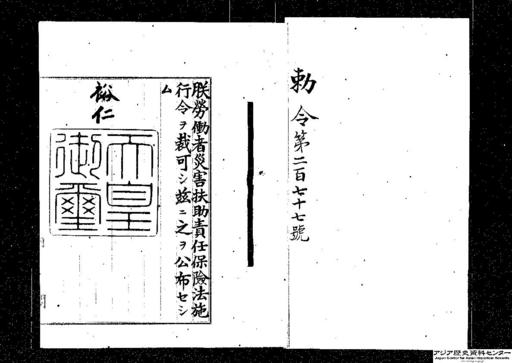 勅令第二百七十七號
朕勞働者災害扶助責任保險法施
行令ヲ裁可シ茲ニ之ヲ公布セシ
ム
裕仁
天皇
御璽
アジア歴史資料センター
Japan Center for Asian Historical Records